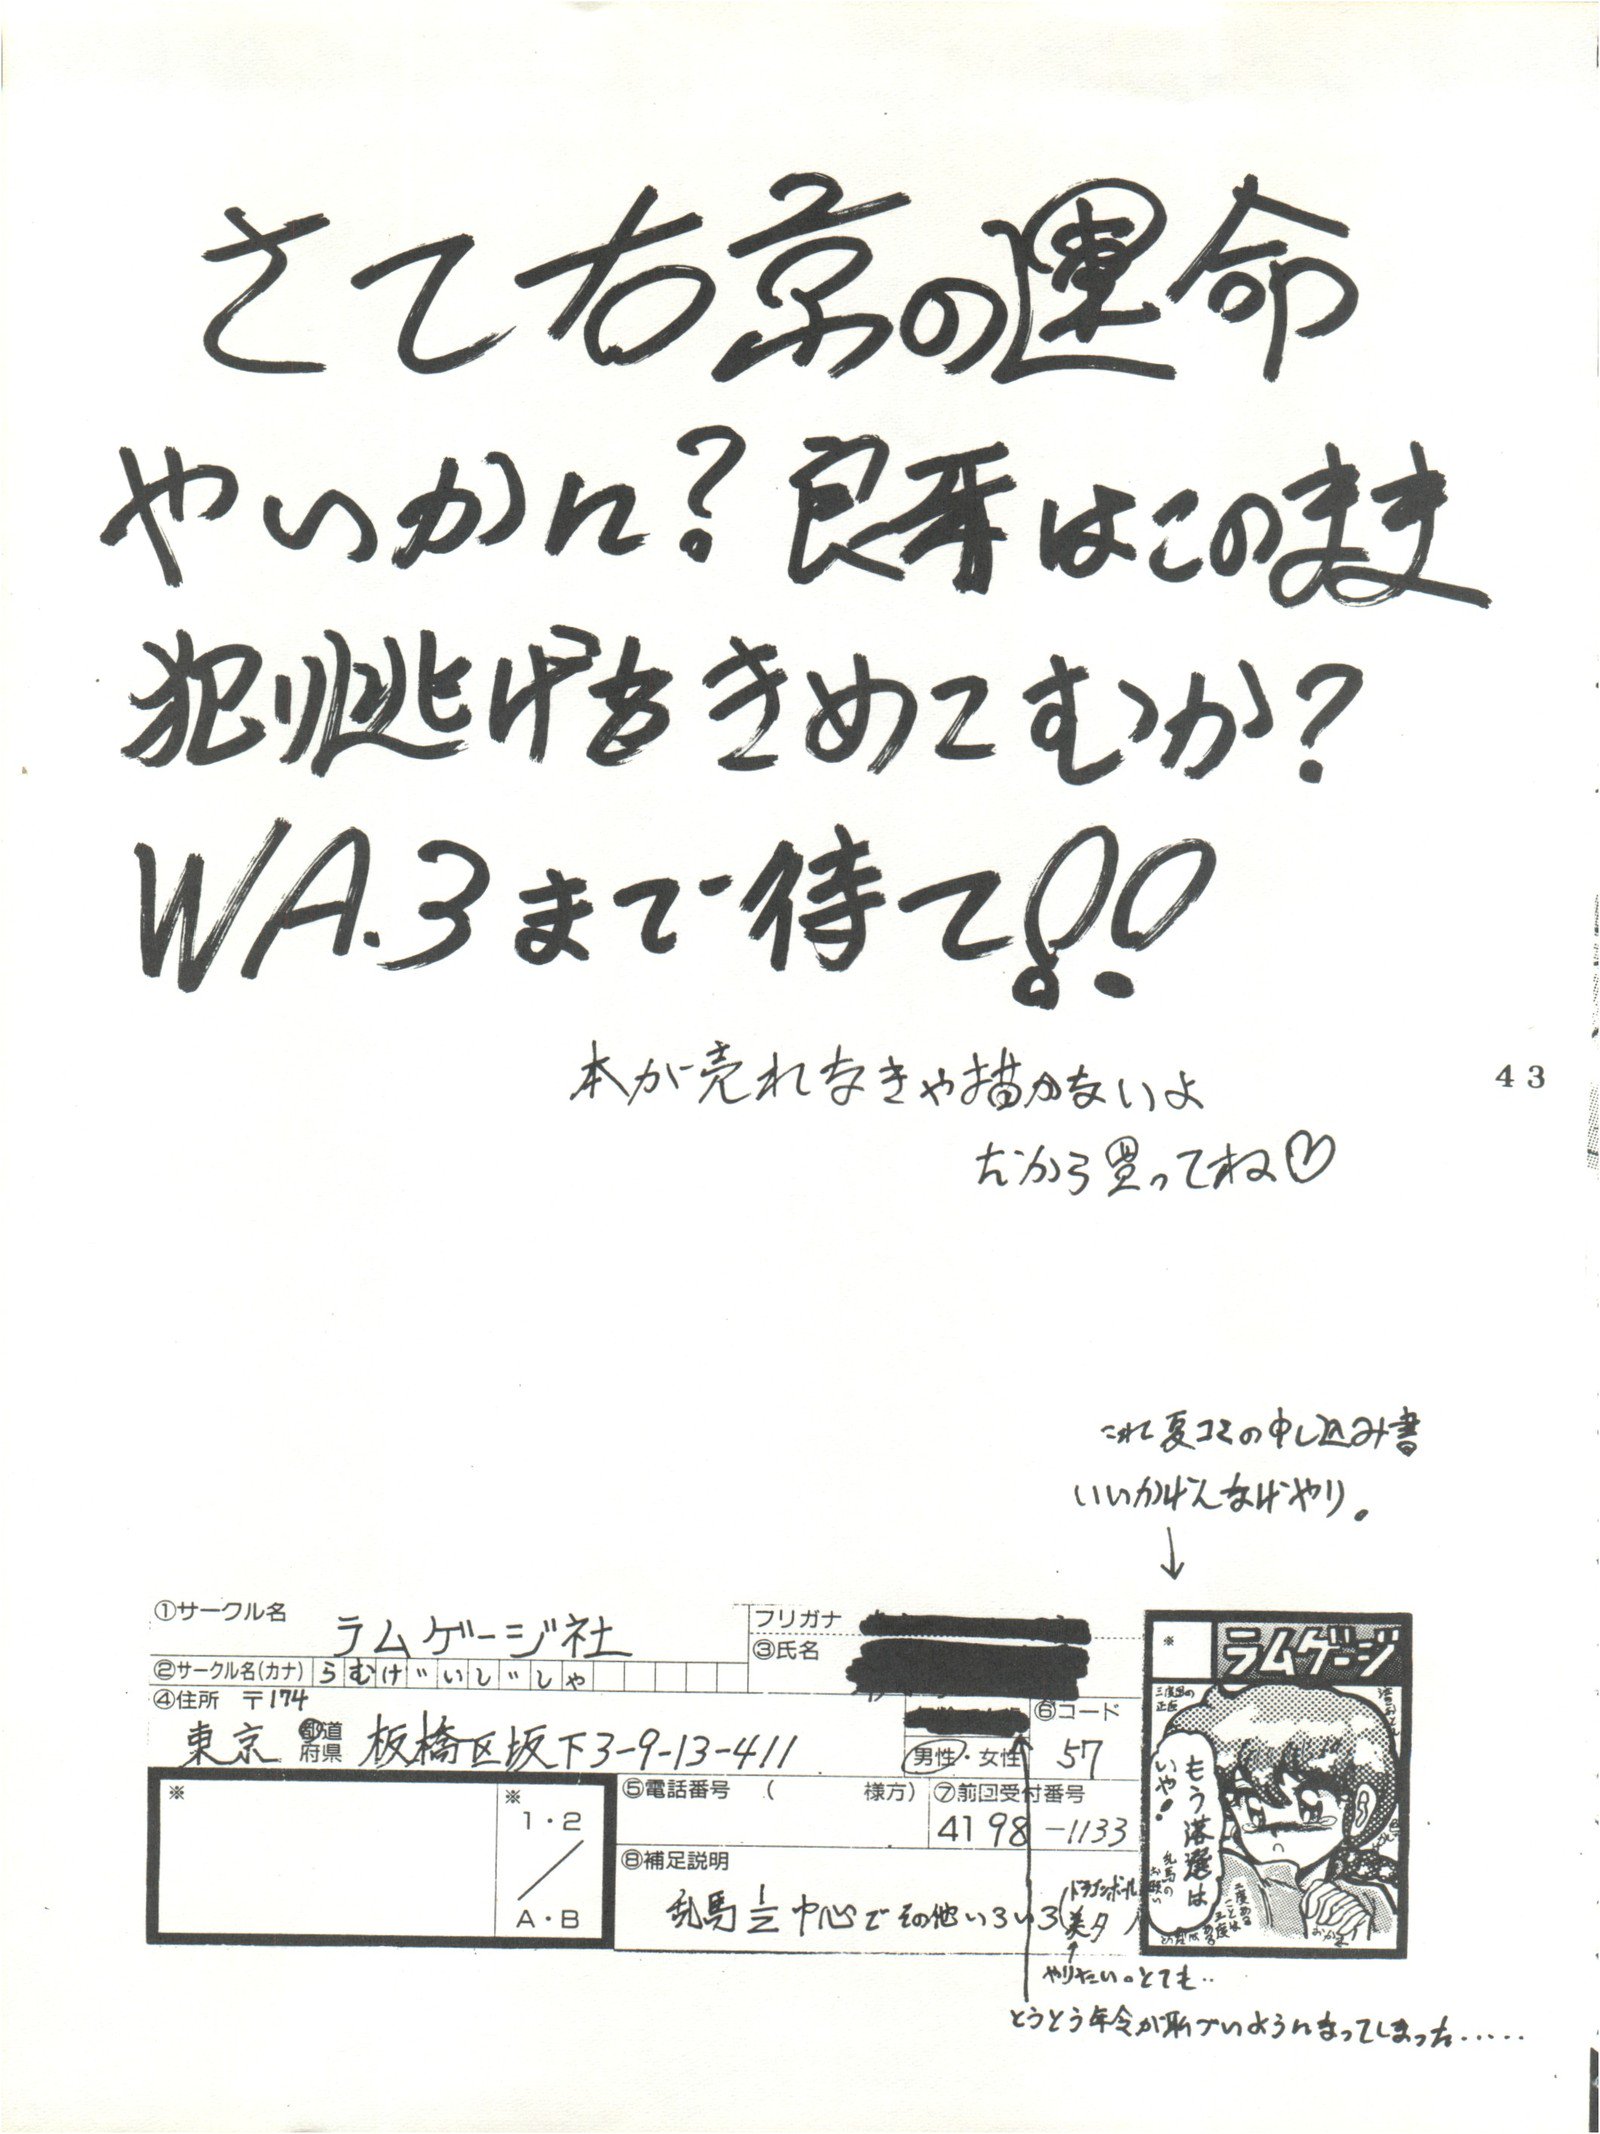 さて右京の運命
やいかに？良牙はこのまま
犯り逃げをきめてむか？
WA.3まで待て!!
本が売れなきゃ描かないよ
だから買ってね♡
43
これ夏コミの申し込み書
いいかげんなげやり。
↓
①サークル名 ラムゲージ社
②サークル名(カナ) らむげいじしゃ
フリガナ
③氏名
④住所 〒174
東京 都道府県 板橋区坂下3-9-13-411
男性・女性
⑥コード
57
※
※
1・2
A・B
⑤電話番号 ( 様方)
⑦前回受付番号
4198-1133
⑧補足説明
乱馬1/2中心でその他いろいろ
ドラゴンボール
※
ラムゲージ
もう落選は
いや!
乱馬の
お願い
やりたい。とても‥
とうとう年令が恥づいようになってしまった‥‥‥